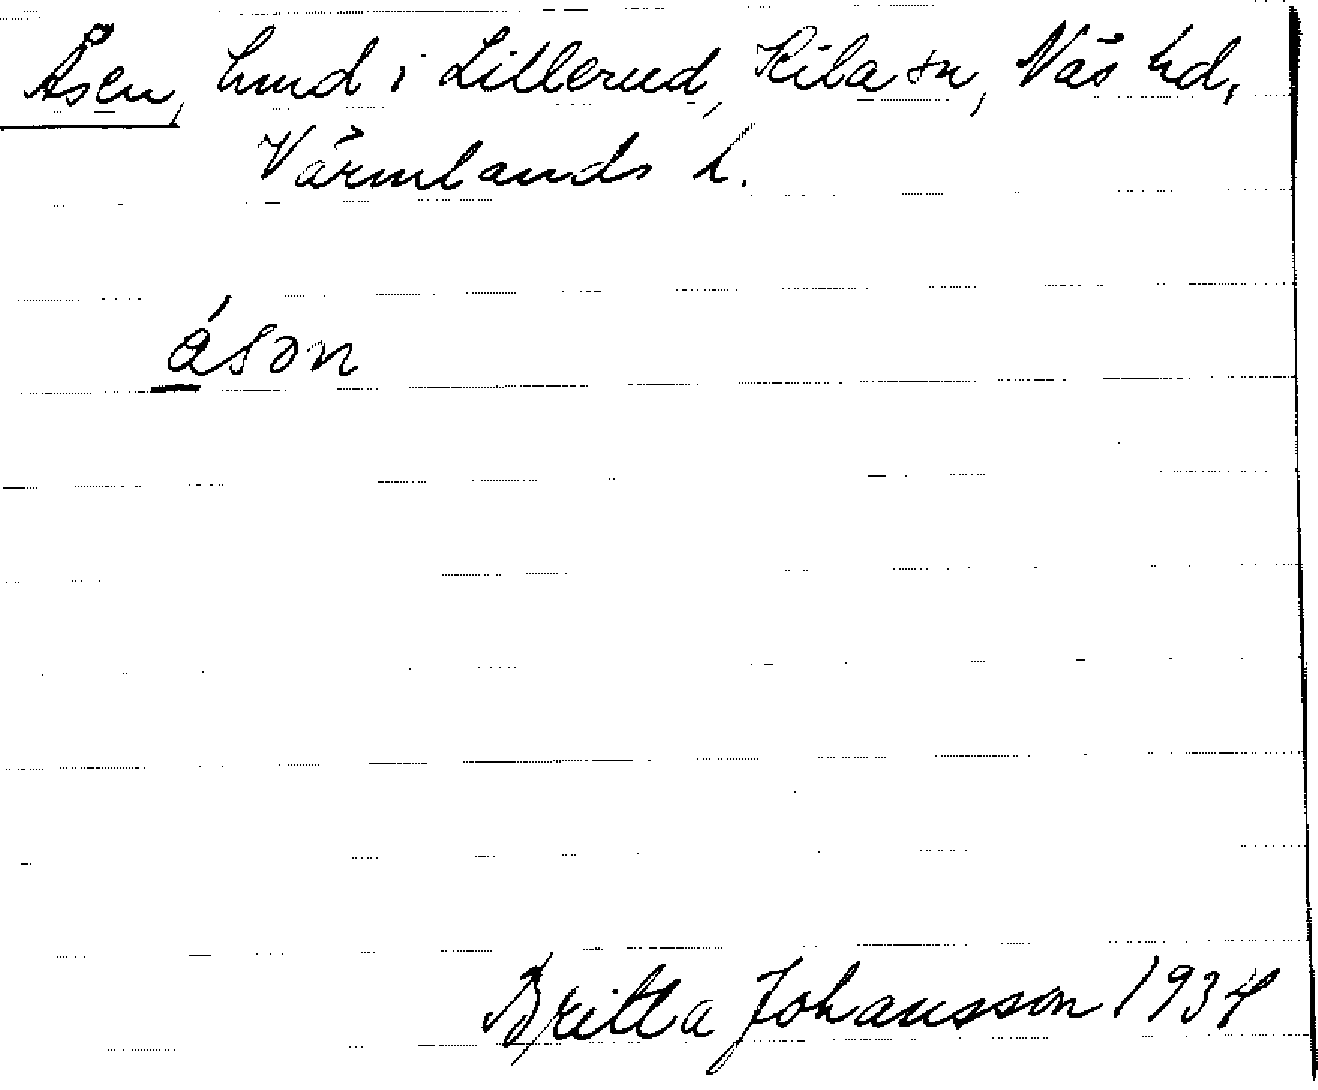 Åsen, Lund i Lillerud, Kila sn, Näs hd,
Värmlands l.
åsən
Britta Johansson 1934